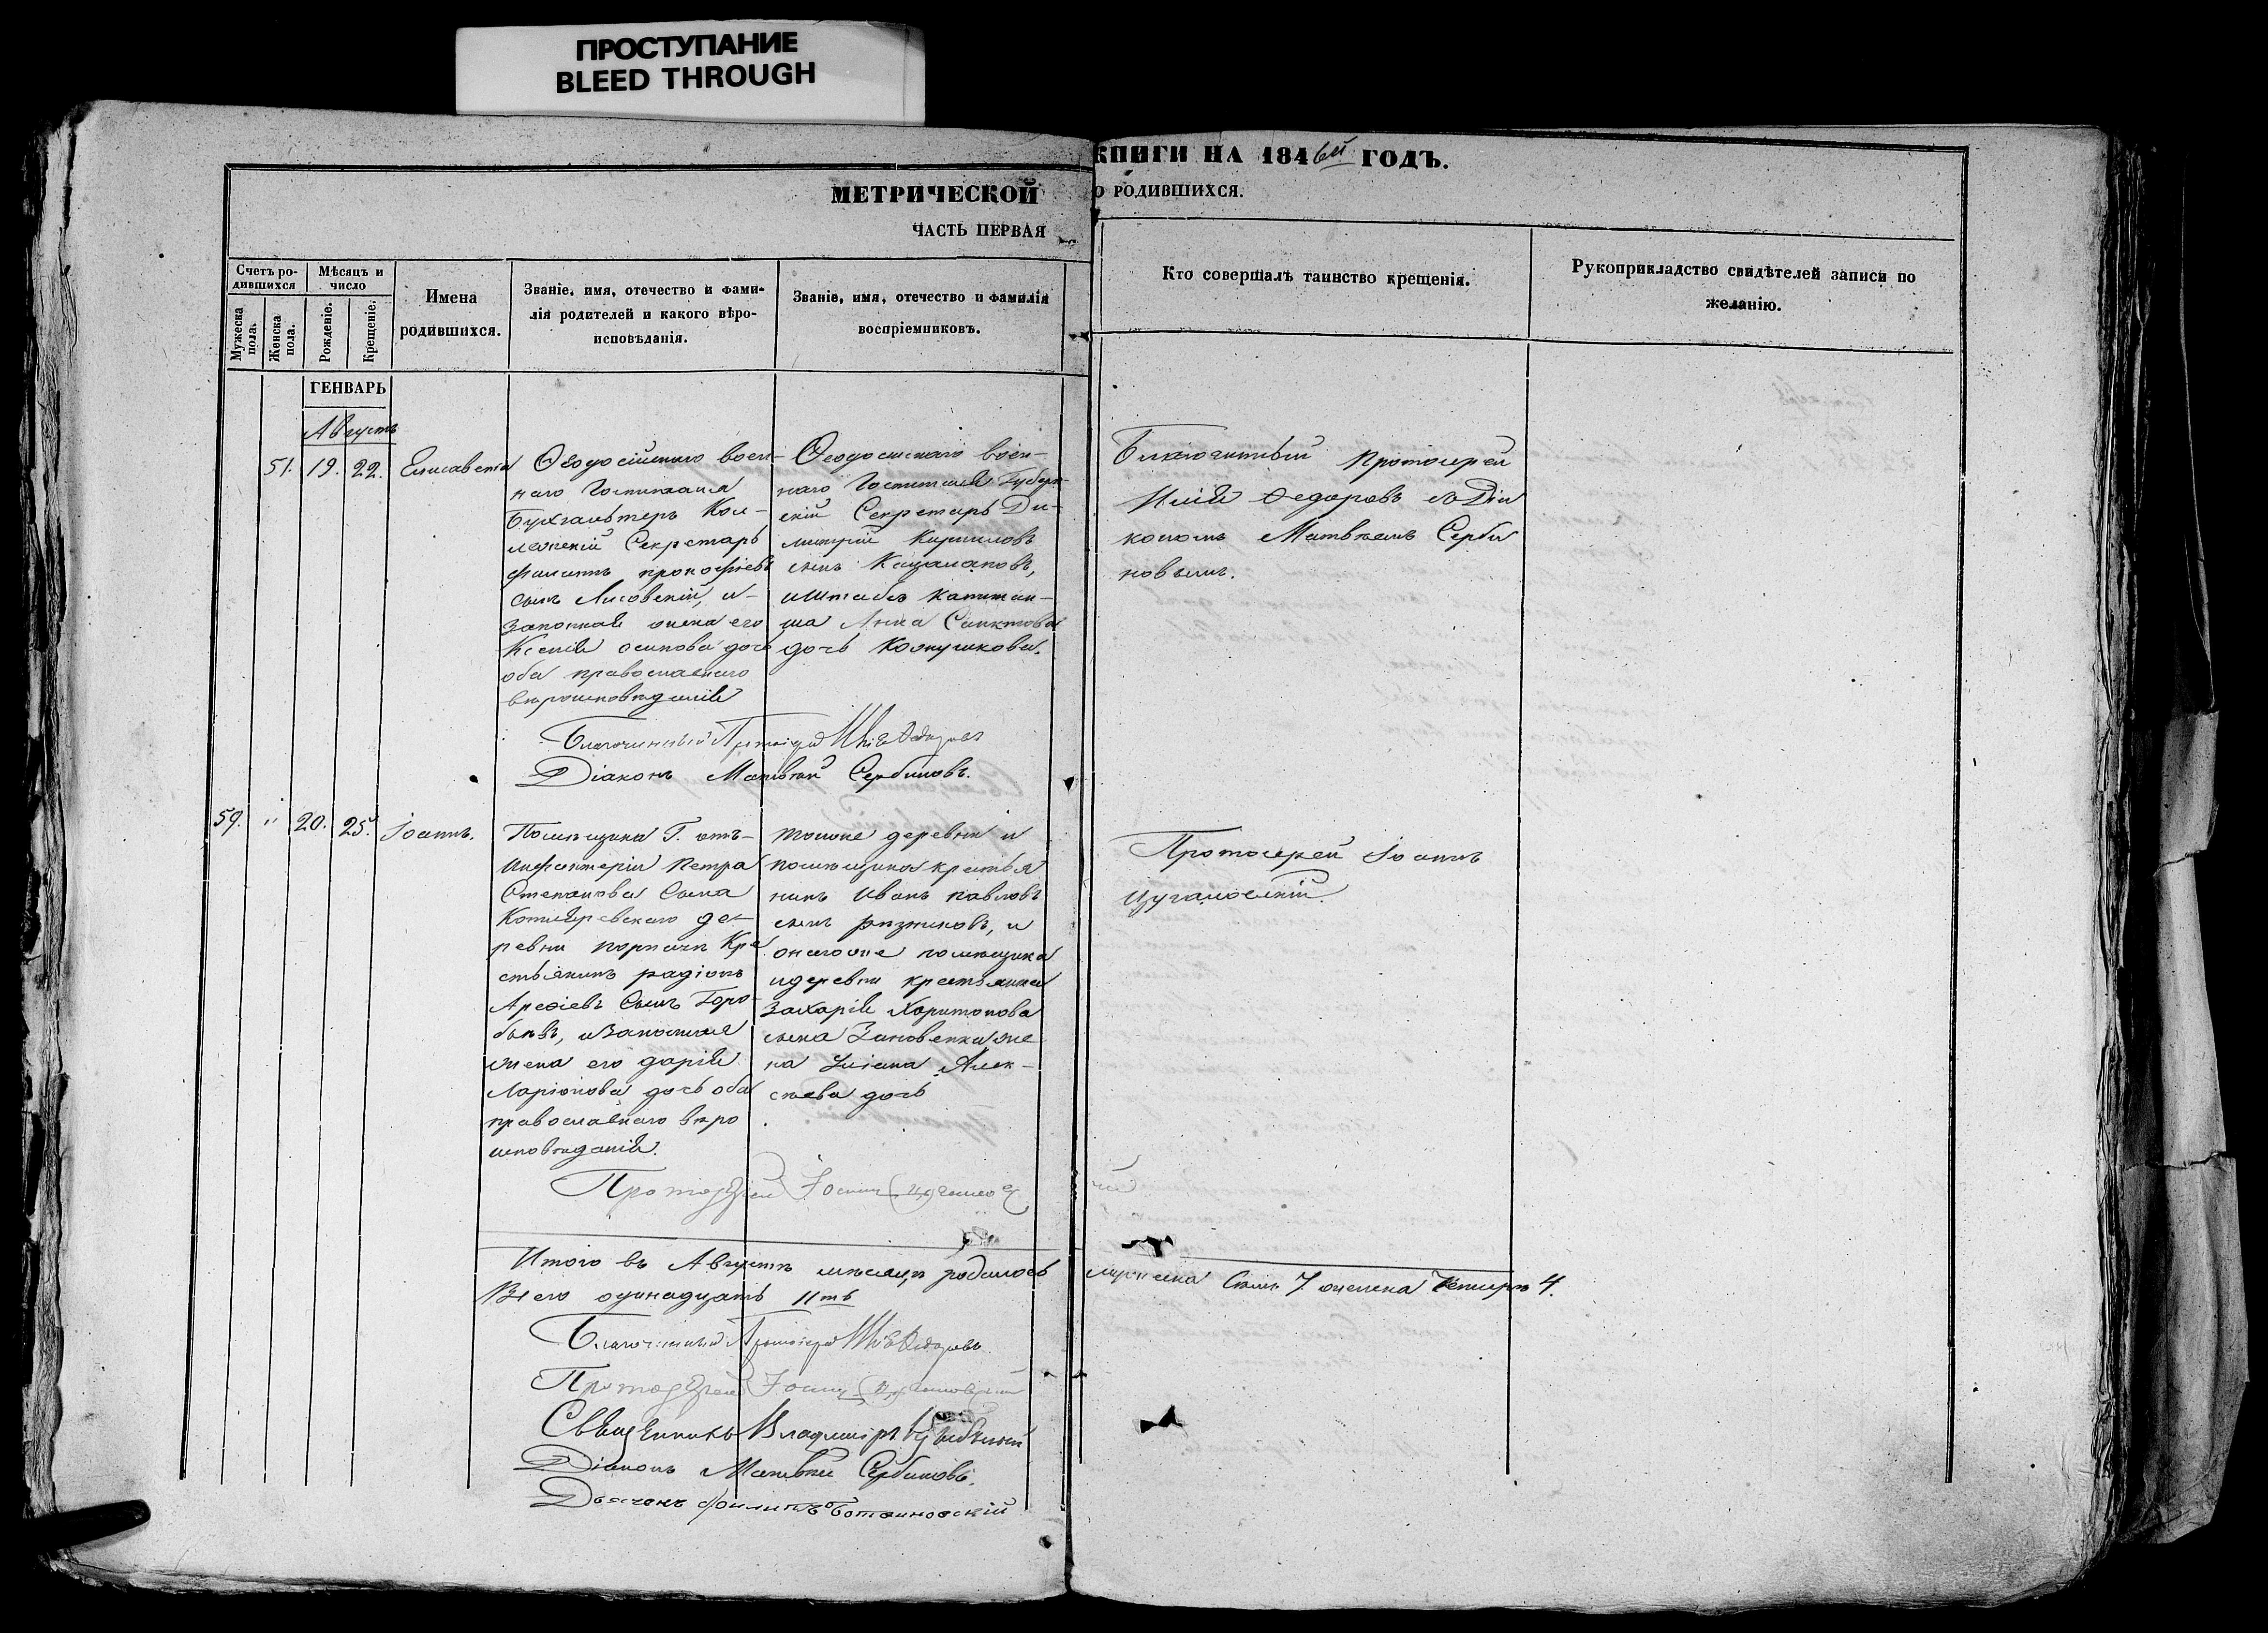 ПРОСТУПАНИЕ
BLEED THROUGH
МЕТРИЧЕСКОЙ
ЧАСТЬ ПЕРВАЯ
КНИГИ НА 1846й ГОДЪ.
О РОДИВШИХСЯ.
Счетъ ро-
дившихся
Мѣсяцъ и
число
Мужеска
пола.
Женска
пола.
Рожденіе.
Крещеніе.
Имена
родившихся.
Званіе, имя, отечество и фами-
лія родителей и какого вѣро-
исповѣданія.
Званіе, имя, отечество и фамилія
воспріемниковъ.
Кто совершалъ таинство крещенія.
Рукоприкладство свидѣтелей записи по
желанію.
ГЕНВАРЬ
Августъ
51. 19. 22. Елисавета
Ѳеодосійскаго воен-
наго Госпиталя
Бухгалтеръ Кол-
лежскій Секретарь
Филиппъ Прокофіевъ
сынъ Лисовскій, и
законная жена его
Ксенія осипова дочь
оба православнаго
вѣроисповѣданія
Ѳеодосійскаго воен-
наго Госпиталя Губерн-
скій Секретарь Ди-
митрій Кириловъ
сынъ
и Штабсъ Капитан-
ша Анна
дочь
Благочинный Протоіерей
Илія Ѳедоровъ съ Діа
кономъ Матвѣемъ Серби
новымъ.
Благочинный Протоіерей Илія Ѳедоровъ
Діаконъ Матвѣй Сербиновъ.
59. " 20. 25. Іоаннъ.
Помѣщика Г. отъ
Инфантеріи Петра
Степанова Сына
Котляревскаго де-
ревни Кре
стьянинъ радіонъ
Арефіевъ Сынъ Горо-
и Законная
жена его дарія
Ларіонова дочь оба
православнаго вѣро
исповѣданія.
тоиже деревни и
помѣщика крестья
нинъ Иванъ павловъ
сынъ рѣзниковъ, и
оногоже помѣщика
и деревни крестьянина
Захарія Харитонова
сына Зиновенка же
на Уліана Алек-
сѣева дочь
Протоіерей Іоаннъ
Цугаловскій.
Протоіерей Іоаннъ
Итого въ Августѣ мѣсяцѣ родилось
мужеска Семь 7 женска Четыре 4.
Всего одинадцать 11ть
Благочинный Протоіерей Илія Ѳедоровъ
Протоіерей Іоаннъ
Священникъ Владиміръ
Діаконъ Матвѣй Сербиновъ.
Дьячекъ Филиппъ